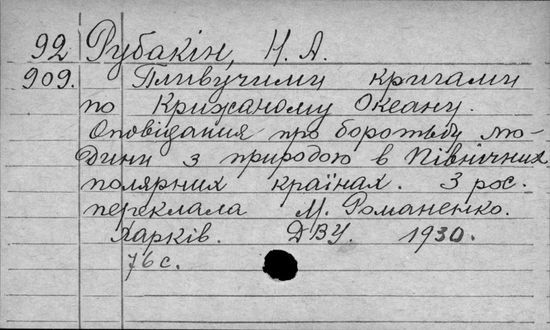 92 Рубакін, Н. А.
909. Пливучими кригами
по Крижаному Океану.
Оповідання про боротьбу лю-
дини з природою в Північних
полярних країнах. З рос.
переклала М. Романенко.
Харків. ДВУ. 1930.
76 с.